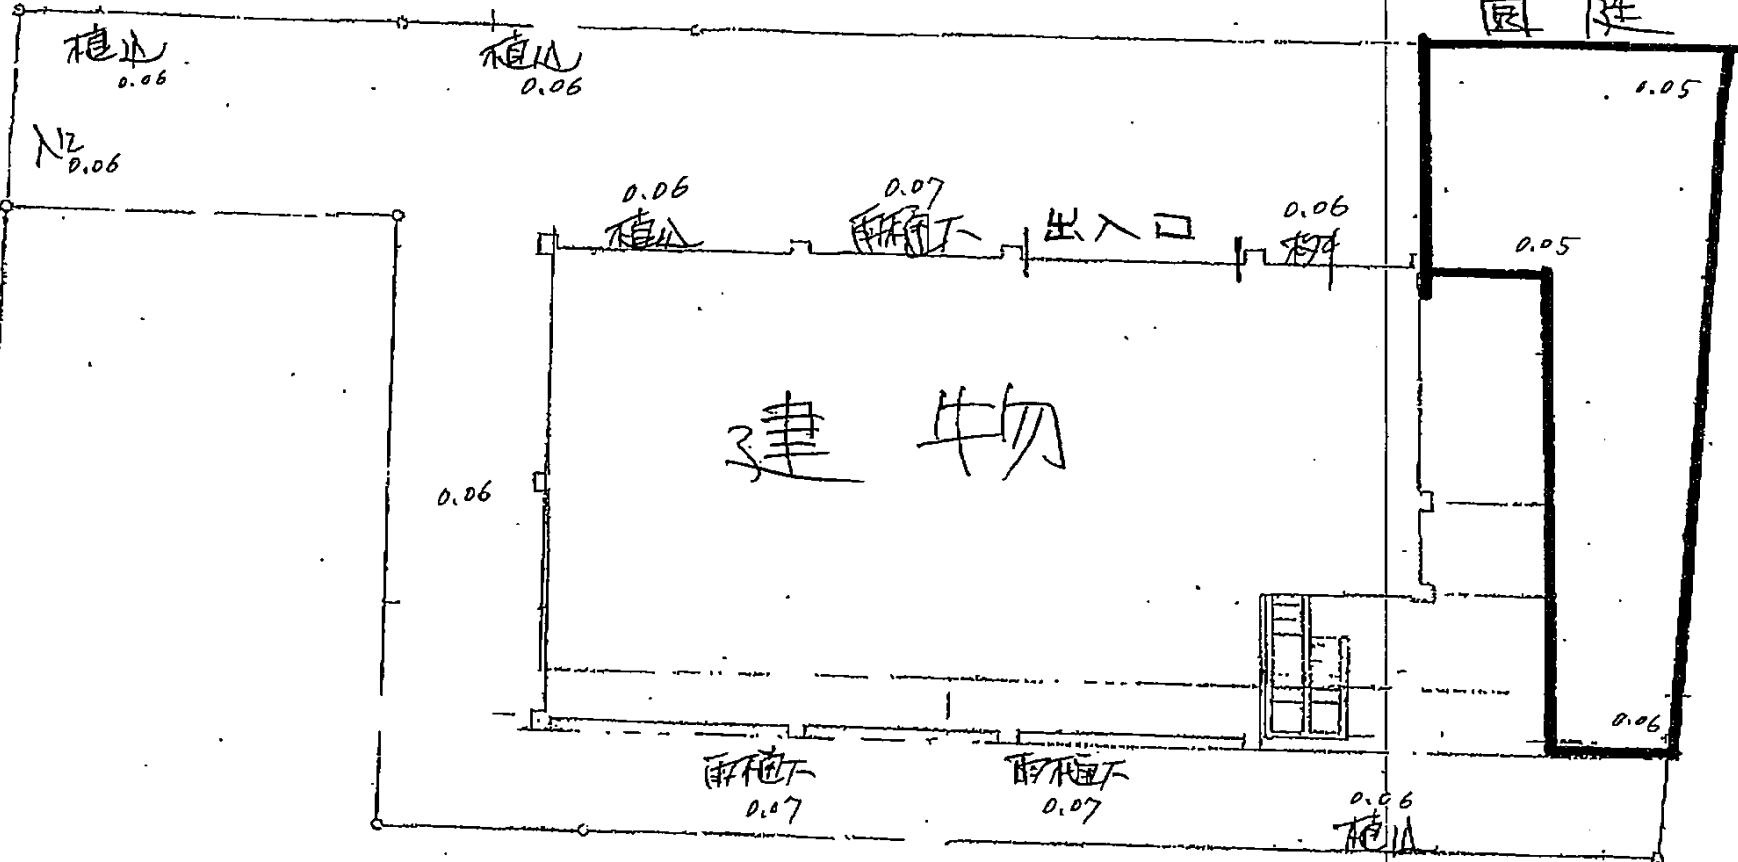 園庭
植込
0.06
植込
0.06
0.05
入口
0.06
0.06
植込
0.07
雨樋下
出入口
0.06
桝
0.05
建物
0.06
0.06
雨樋下
0.07
雨樋下
0.07
0.06
植込